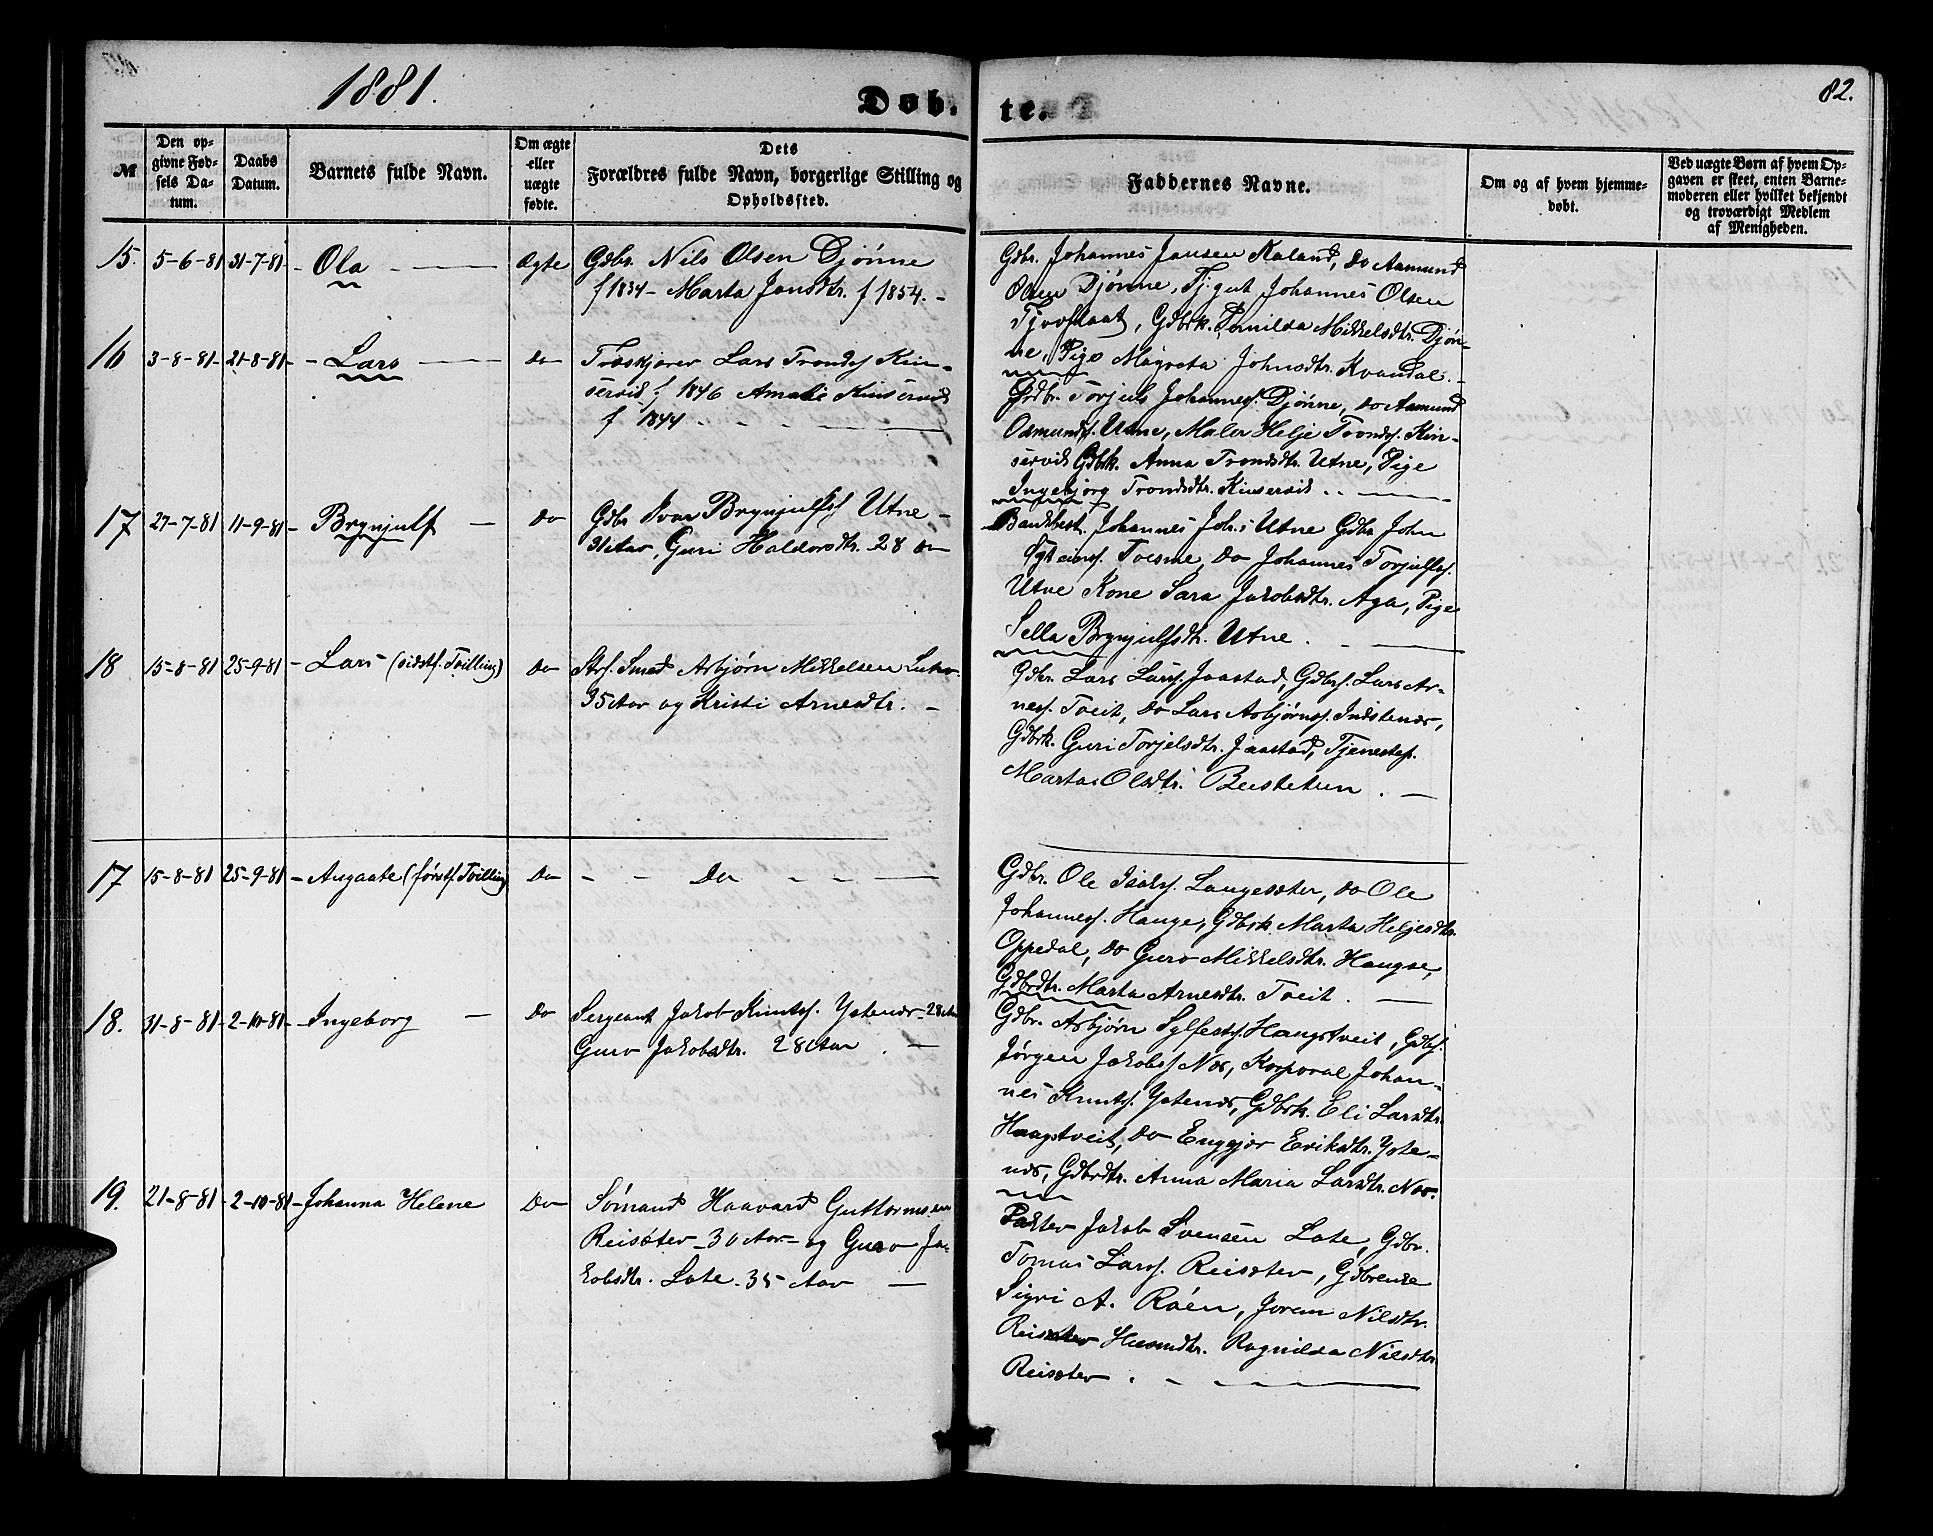 1881.
Døb.
te.
82.
№
Den op-
givne Fød-
sels Da-
tum.
Daabs
Datum.
Barnets fulde Navn.
Om ægte
eller
uægte
fødte.
Dets
Forældres fulde Navn, borgerlige Stilling og
Opholdssted.
Faddernes Navne.
Om og af hvem hjemme-
døbt.
Ved uægte Børn af hvem Op-
gaven er skeet, enten Barne-
moderen eller hvilket bekjendt
og troværdigt Medlem
af Menigheden.
15. 5-6-81 31-7-81 - Ola - Ægte
Gdbr. Nils Olsen Djønne
f 1834 - Marta Jonsdtr. f 1854. -
Gdbr. Johannes Jansen Raland, Do Aamund
Olsen Djønne, Tj.gut Johannes Olsen
Tjoflaat, Gdbrk. Pernilda Mikkelsdtr. Djøn-
ne, Pige Magreta Johnsdtr. Kvandal. -
16 3-8-81 21-8-81 - Lars - Do
Træskjærer Lars Tronds. Kin-
servik f 1846 Amalie Kinservik
f 1844 - - - -
Gdbr. Torjuls Johanness. Djønne, Do Aamund
Osmunds. Utne, Maler Helje Tronds. Kin-
servik Gdbrk. Anna Trondsdtr. Utne, Pige
Ingebjørg Trondsdtr. Kinservik . . -
17 27-7-81 11-9-81 - Brynjulf - Do
Gdbr Ivar Brynjulfs. Utne -
31 Aar, Guri Haldorsdtr. 28 Do
Bandbest. Johannes Joh.s Utne Gdbr John
Sjsteins. Tvesme, Do Johannes Torjulfs.
Utne Kone Sara Jakobsdtr. Aga, Pige
Sella Brynjulfsdtr. Utne. -
18 15-8-81 25-9-81 - Lars (sidstf. Tvilling) Do
Strf. Smed Asbjørn Mikkelsen Lutro.
35 Aar og Kristi Arnesdtr. -
Gdbr. Lars Larss. Jaastad, Gdbrs. Lars Ar-
ness. Tveit, Do Lars Asbjørnss. Indstenæs,
Gdbrk. Guri Torjelsdtr. Jaastad, Tjenestep.
Marta Olsdtr. Bustetun . -
17 15-8-81 25-9-81 - Angaate (førstf. Tvilling) Do
- - Do - - -
Gdbr. Ole Isaks. Langesæter, Do Ole
Johanness. Hauge, Gdbrk Marta Heljesdtr.
Oppedal, Do Guro Mikkelsdtr. Haugse,
Gdbrdtr. Marta Arnesdtr. Tveit. -
18. 31-8-81 - 2-10-81 - Ingeborg - Do
Sergeant Jakob Knuts. Ystenæs - 28 Aar
Guro Jakobsdtr. 28 Aar . -
Gdbr. Asbjørn Sylfests. Haugstveit, Gdbs.
Jørgen Jakobss Næs, Korporal Johan-
nes Knuts. Ystenæs, Gdbrk. Eli Larsdtr.
Haugstveit, Do Enggjær Eriksdtr. Yste-
næs, Gdbrdtr. Anna Maria Larsdtr. Næs.
19. 21-8-81 - 2-10-81 - Johanna Helene Do
Sømand Haavard Guttormsen
Reisæter - 30 Aar - og Guro Ja-
kobsdtr. Lote. 35 Aar -
Pakter Jakob Svensen Lote, Gdbr.
Tomas Larss. Reisæter, Gdbrenke
Sigri A. Raaen, Joren Nilsdtr.
Reisæter Husmdtr. Ragnilda Nilsdtr
Reisæter . - - -